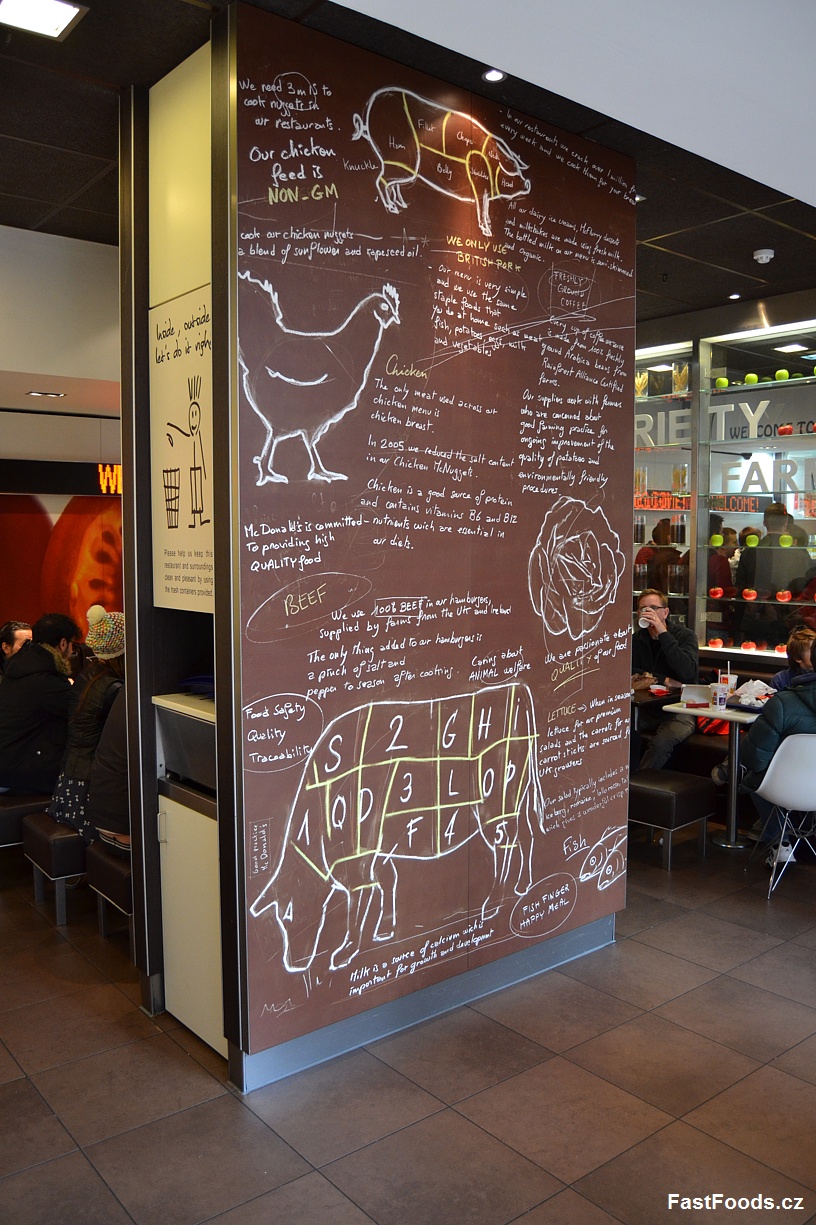 We need 3 mls to
cook nuggets in
our restaurants.
Our chicken
feed is
NON-GM
cook our chicken nuggets
a blend of sunflower and rapeseed oil.
Knuckle
Ham
Fillet
Chops
Belly
Shoulder
Head
WE ONLY USE
BRITISH PORK
In our restaurants we crack over 1 million
every week and we cook them for your
All our dairy ice creams, McFlurry desserts
and milkshakes are made using fresh milk.
The bottled milk on our menu is semi-skimmed
and organic.
Our menu is very simple
and we use the same
staple foods that
you do at home such as meat
fish, potatoes, eggs, milk
and vegetables
FRESHLY
GROUND
COFFEE
Every cup of coffee we serve
is made from 100% freshly
ground Arabica beans from
Rainforest Alliance Certified
farms.
Our suppliers work with farmers
who are concerned about
good farming practice for
ongoing improvement of the
quality of potatoes and
environmentally friendly
procedures
Chicken
The only meat used across our
chicken menu is
chicken breast.
In 2005 we reduced the salt content
in our Chicken McNuggets.
Chicken is a good source of protein
and contains vitamins B6 and B12
nutrients wich are essential in
our diets.
McDonald's is committed
To providing high
QUALITY food
BEEF
We use 100% BEEF in our hamburgers,
supplied by farms from the UK and Ireland
The only thing added to our hamburgers is
a pinch of salt and
pepper to season after cooking.
Caring about
ANIMAL welfare
We are passionate about
QUALITY of our food
Food Safety
Quality
Traceability
S 2 G H i
1 Q D 3 L O P
F 4 5
Good practice
Mc Donald's
LETTUCE → When in season
lettuce for our premium
salads and the carrots for
carrot sticks are sourced
UK growers
Our salad typically includes a
iceberg, romaine, lollo rosso
Fish
FISH FINGER
HAPPY MEAL
Milk is a source of calcium wich is
important for growth and development
Inside, outside
let's do it right
Please help us keep this
restaurant and surroundings
clean and pleasant by using
the trash containers provided.
RIETY
WELCOME TO
FAR
WELCOME!
FastFoods.cz